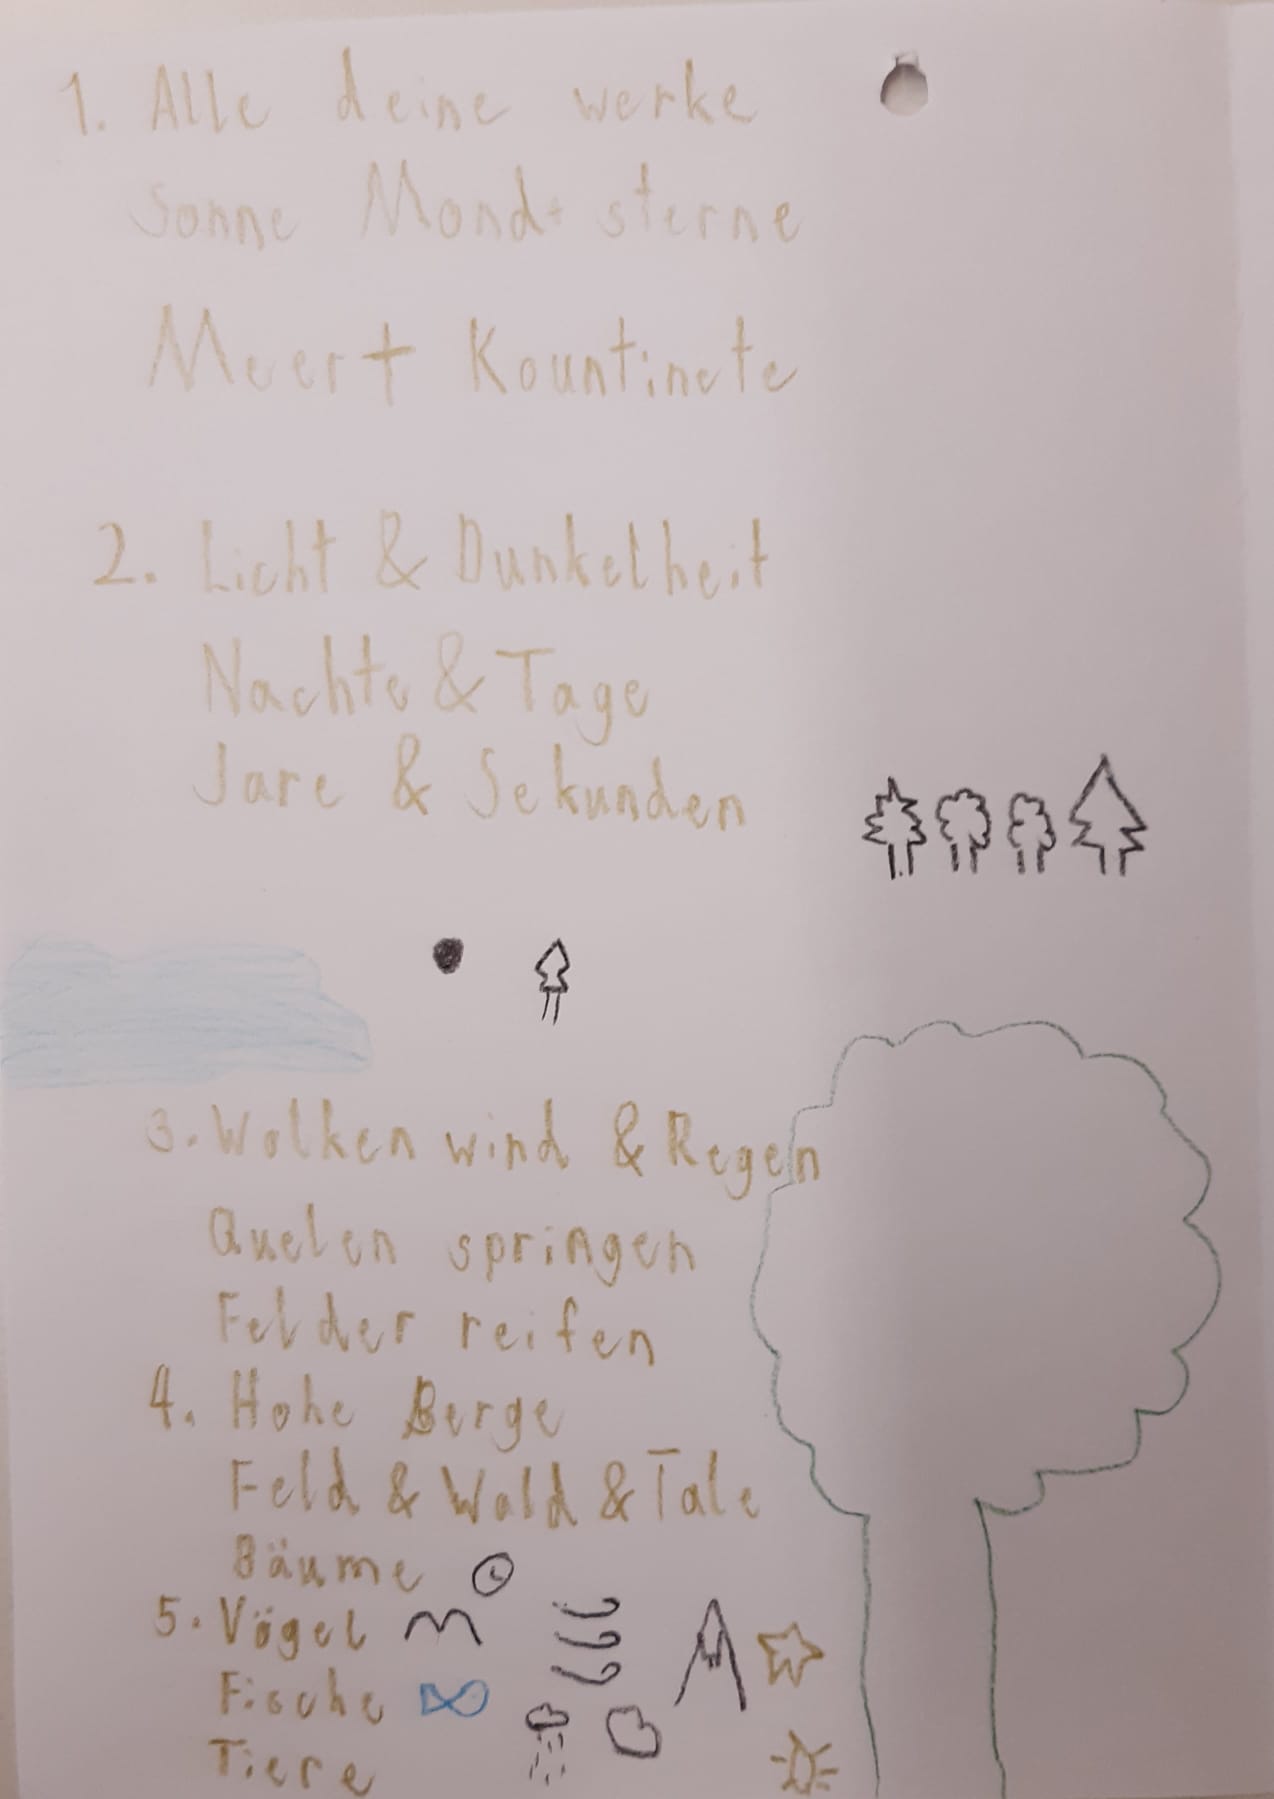 1. Alle deine werke
Sonne Mond+ sterne
Meer+ Kountinete
2. Licht & Dunkelheit
Nachte & Tage
Jare & Sekunden
3. Wolken wind & Regen
Quelen springen
Felder reifen
4. Hohe Berge
Feld & Wald & Tale
Bäume
5. Vögel
Fische
Tiere